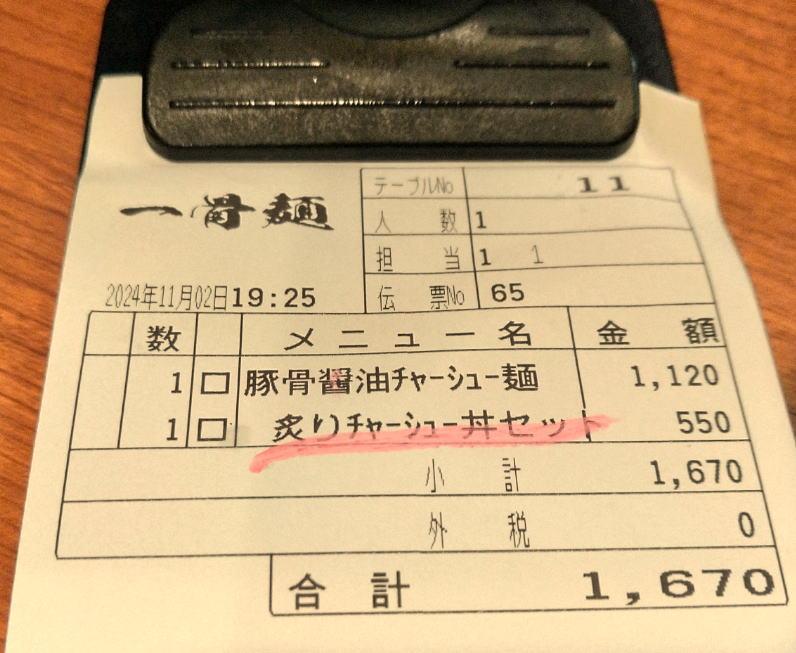 一骨麺
テーブルNo 11
人数 1
担当 1 1
伝票No 65
2024年11月02日19:25
数 メニュー名 金額
1 □ 豚骨醤油ﾁｬｰｼｭｰ麺 1,120
1 □ 炙りﾁｬｰｼｭｰ丼セット 550
小計 1,670
外税 0
合計 1,670